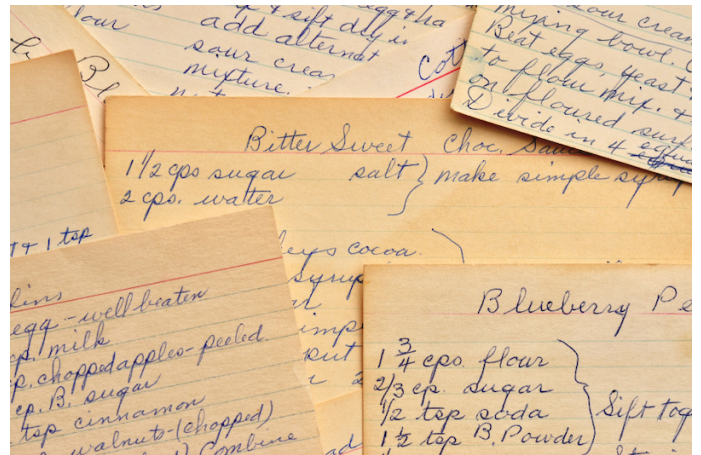 our
& sift dry in
add alternat
sour crea
mixture.
Cott
sour cream
mixing bowl.
Beat eggs, yeast
to flour mix. &
on floured surf
Divide in 4 equa
Bitter Sweet Choc. Sauc
1 1/2 cps sugar salt } make simple syrup
2 cps. watter
eys cocoa
syrup
imp
put
& 1 tsp
lins
egg - well beaten
cp. milk
p. chopped apples - peeled.
cp. B. sugar
tsp cinnamon
walnuts - (chopped)
Combine
Blueberry Pe
1 3/4 cps. flour
2/3 cp. sugar
1/2 tsp soda
1 1/2 tsp B. Powder
Sift tog
ad